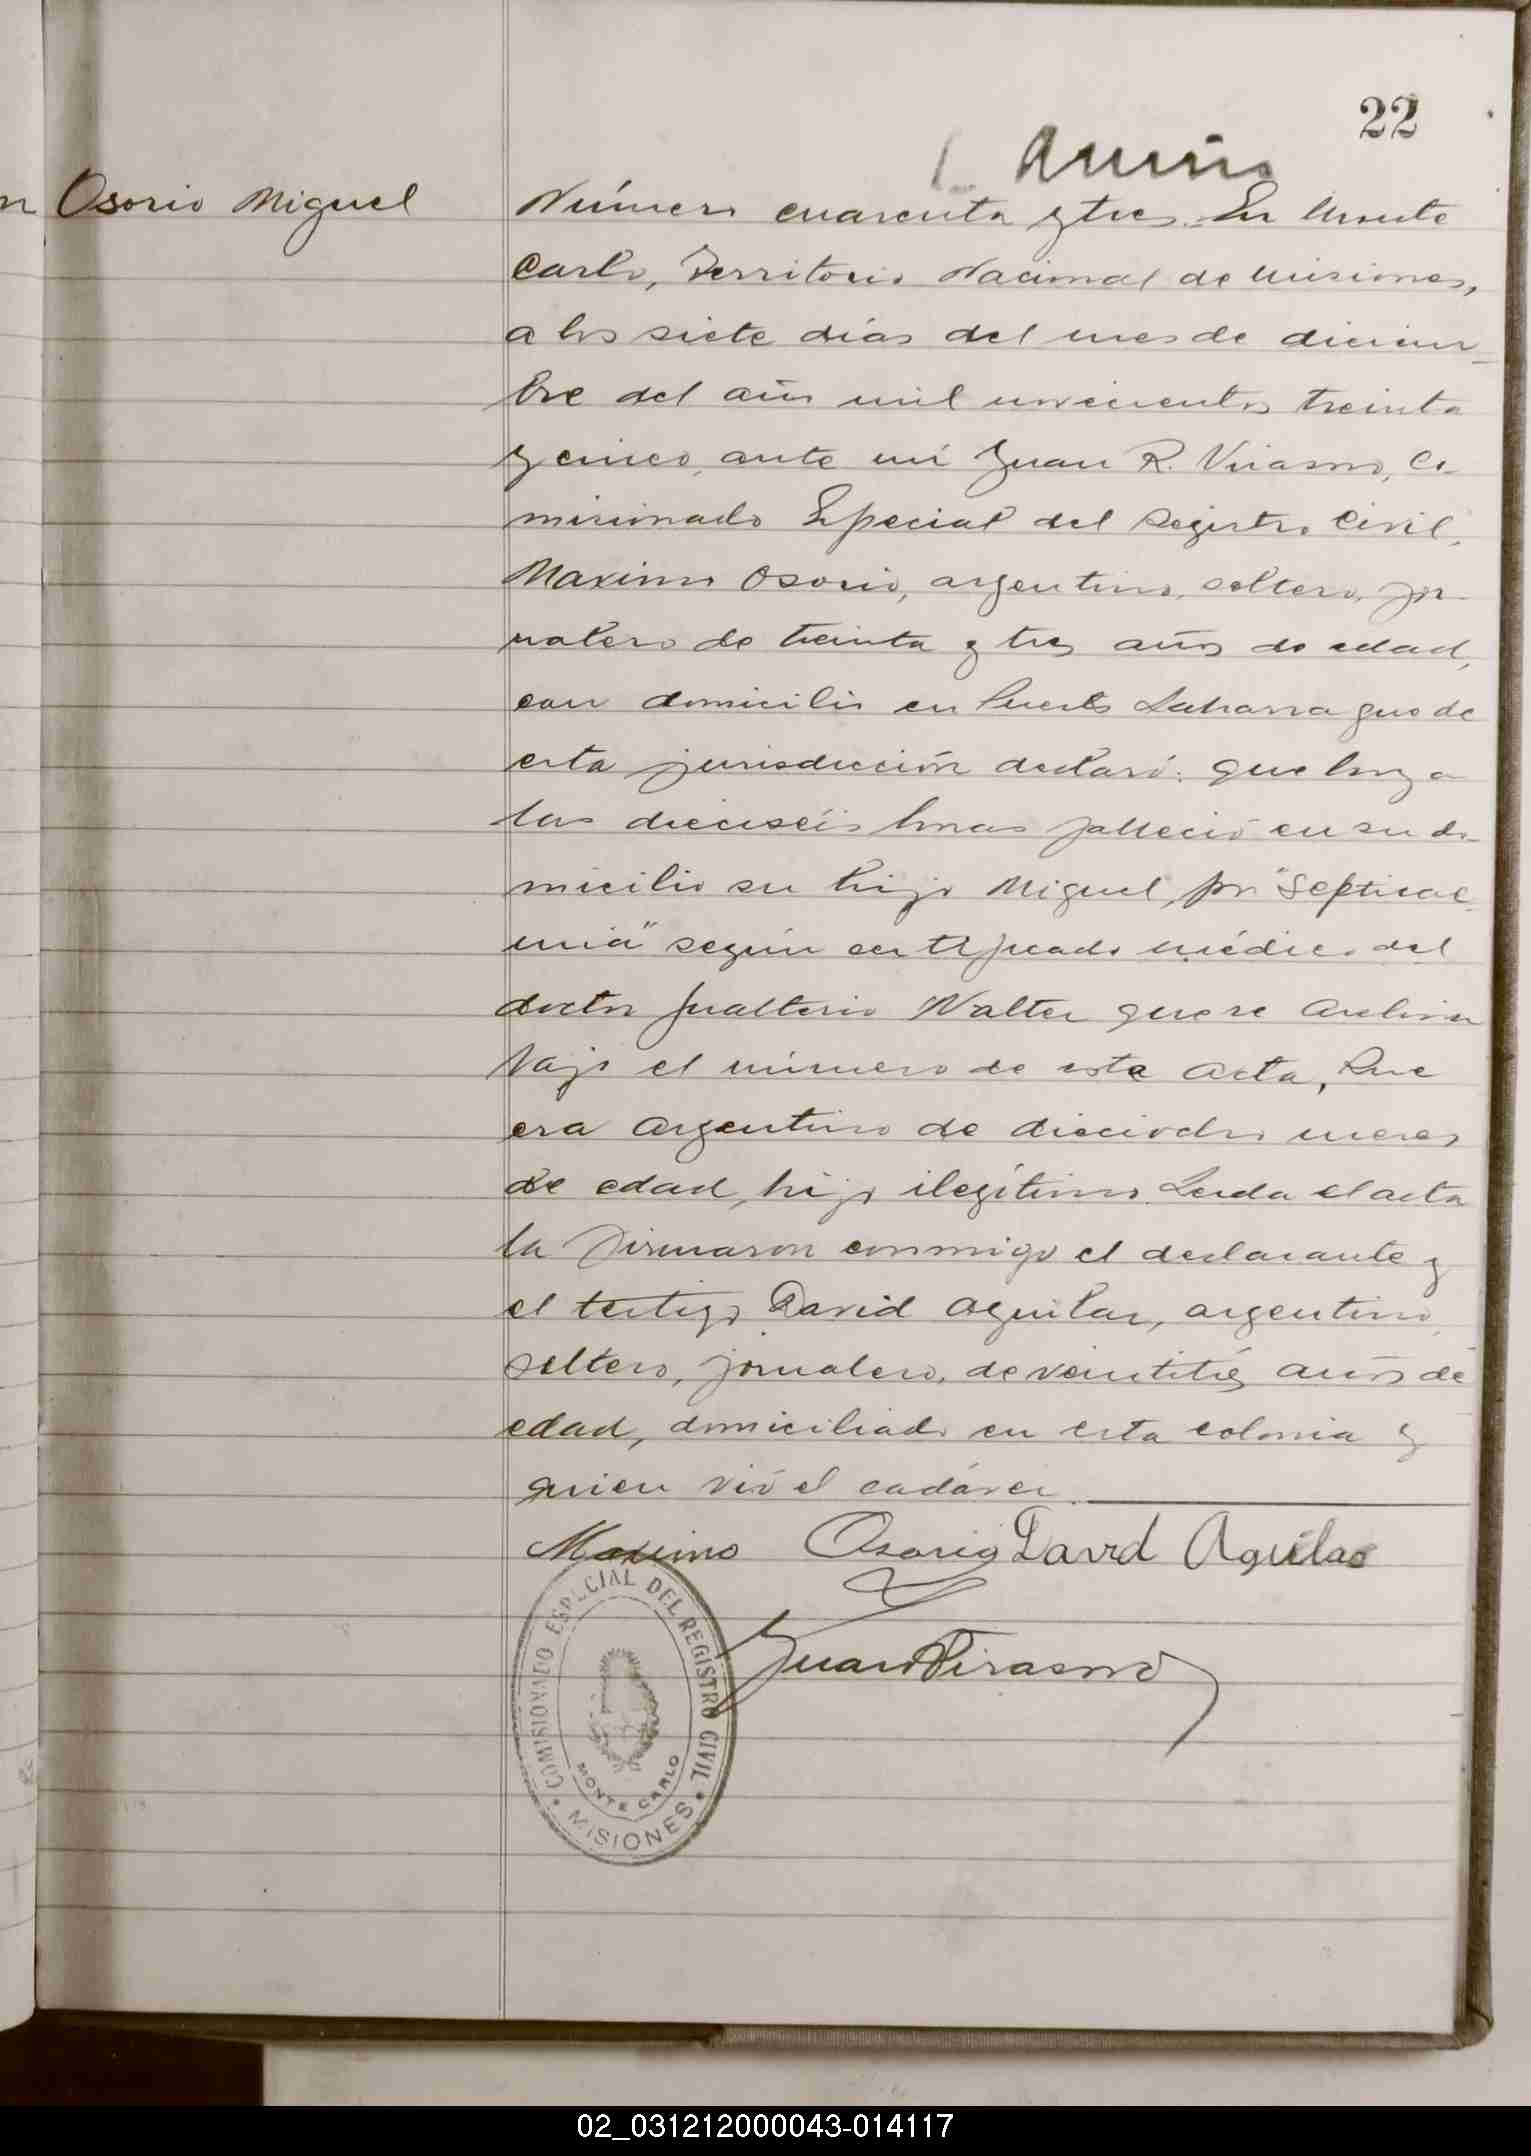 22
Osorio Miguel
Número cuarenta y tres. En Monte
Carlo, Territorio Nacional de Misiones,
a los siete días del mes de diciem-
bre del año mil novecientos treinta
y cinco, ante mí Juan R. Virasoro, Co-
misionado Especial del Registro Civil,
Maximo Osorio, argentino, soltero, jor-
nalero de treinta y tres años de edad,
con domicilio en Puerto Laharrague de
esta jurisdicción declaró: que hoy a
las dieciseis horas falleció en su do-
micilio su hijo Miguel, por "Septicae-
mia" según certificado médico del
doctor Gualterio Walter que se archiva
bajo el número de este acta, Que
era argentino de dieciocho meses
de edad, hijo ilegítimo. Leida el acta
la firmaron conmigo el declarante y
el testigo David Aguilar, argentino,
soltero, jornalero, de veintitrés años de
edad, domiciliado en esta colonia y
quien vió el cadáver.
Maximo Osorio David Aguilar
Juan R Virasoro
COMISIONADO ESPECIAL DEL REGISTRO CIVIL
MONTE CARLO
MISIONES
02_031212000043-014117